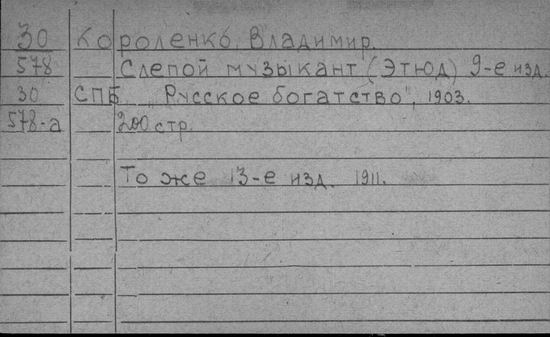 30 Короленко, Владимир.
578 Слепой музыкант (Этюд) 9-е изд.
30 СПБ. „Русское богатство", 1903.
578-а 200 стр.
То же 13-е изд. 1911.